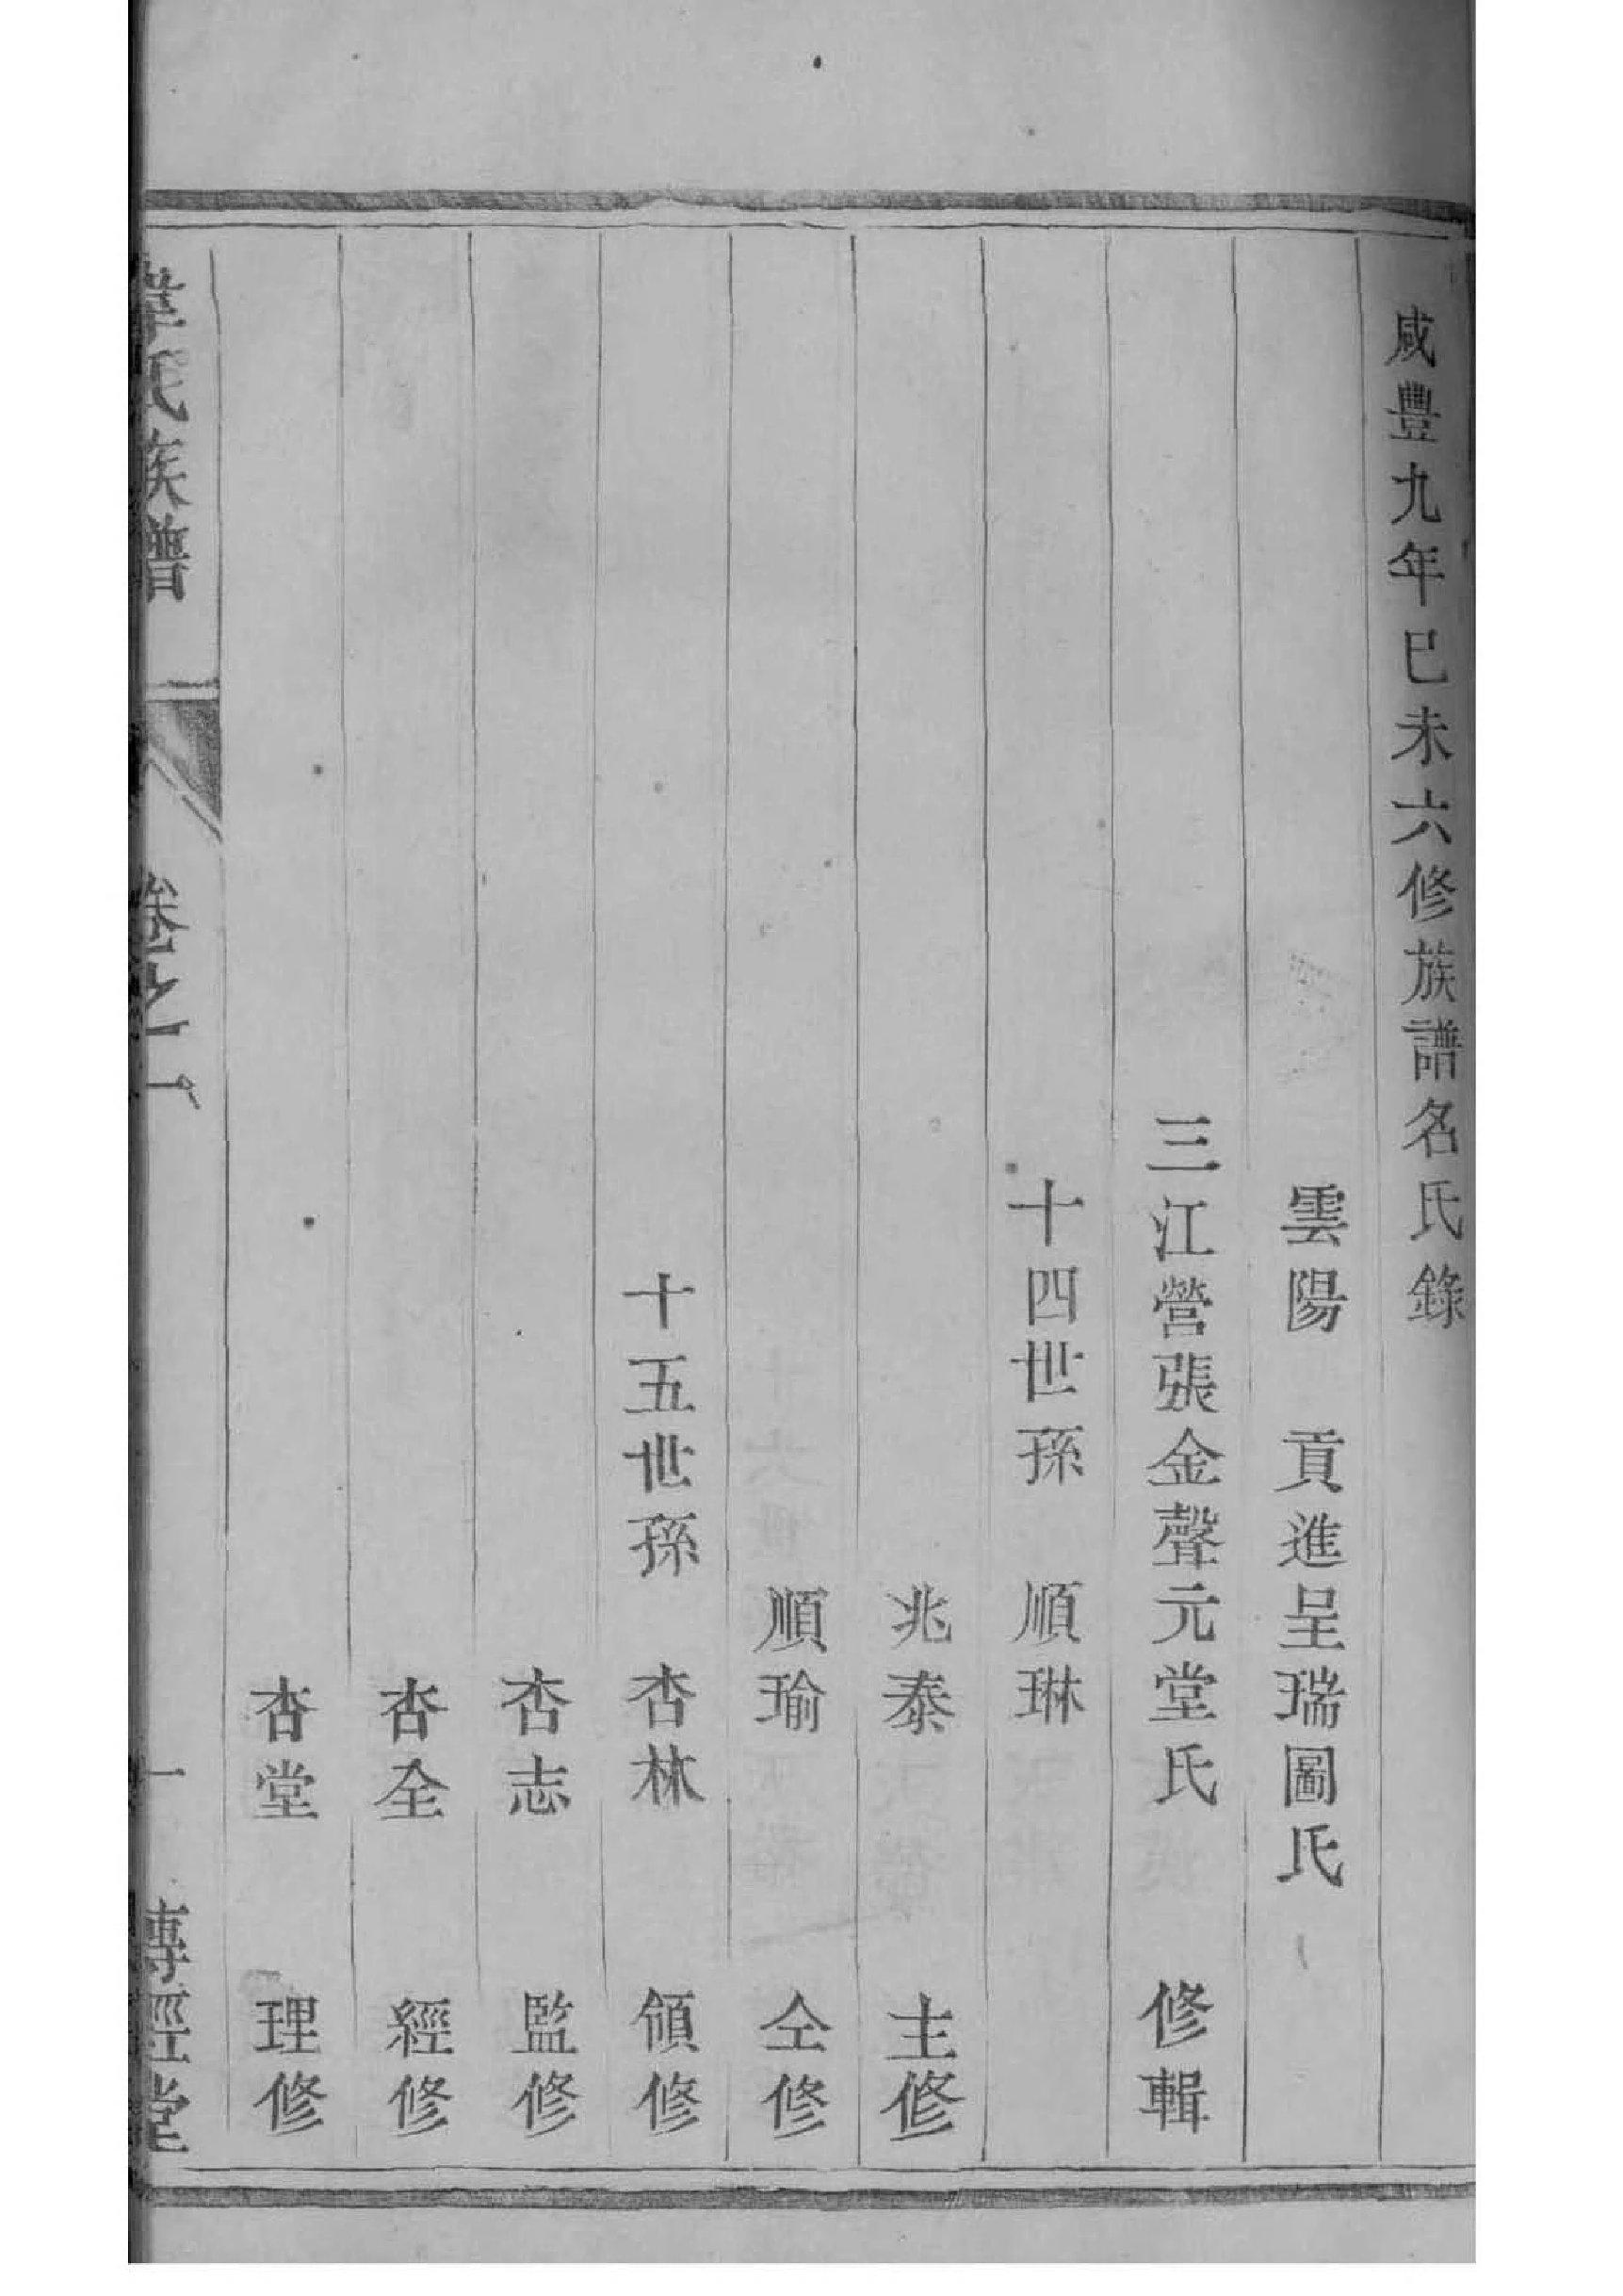 咸豐九年巳未六修族譜名氏錄
雲陽　貢進呈瑞圖氏
三江營張金聲元堂氏　修輯
十四世孫　順琳
兆泰　主修
順瑜　仝修
十五世孫　杏林　領修
杏志　監修
杏全　經修
杏堂　理修
韋氏族譜　卷之一　一　傳經堂